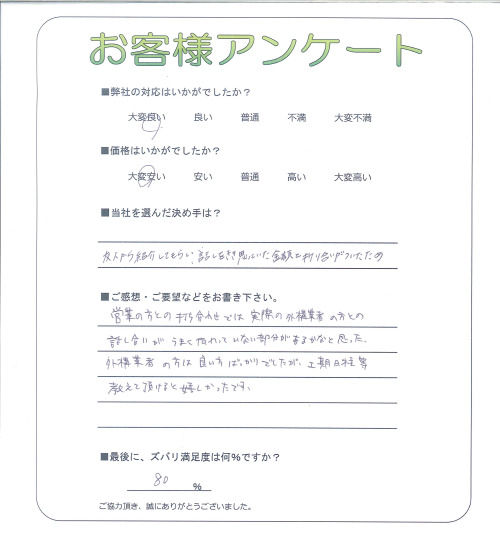 お客様アンケート
■弊社の対応はいかがでしたか？
大変良い 良い 普通 不満 大変不満
■価格はいかがでしたか？
大変安い 安い 普通 高い 大変高い
■当社を選んだ決め手は？
友人から紹介してもらい、話し 金額と折り合いがついたため
■ご感想・ご要望などをお書き下さい。
営業の方との打ち合わせでは実際の外構業者の方との
話し合いがうまく伝わっていない部分があるかなと思った。
外構業者の方は良い方ばっかりでしたが、工期日程等
教えて頂けると嬉しかったです。
■最後に、ズバリ満足度は何%ですか？
80 %
ご協力頂き、誠にありがとうございました。